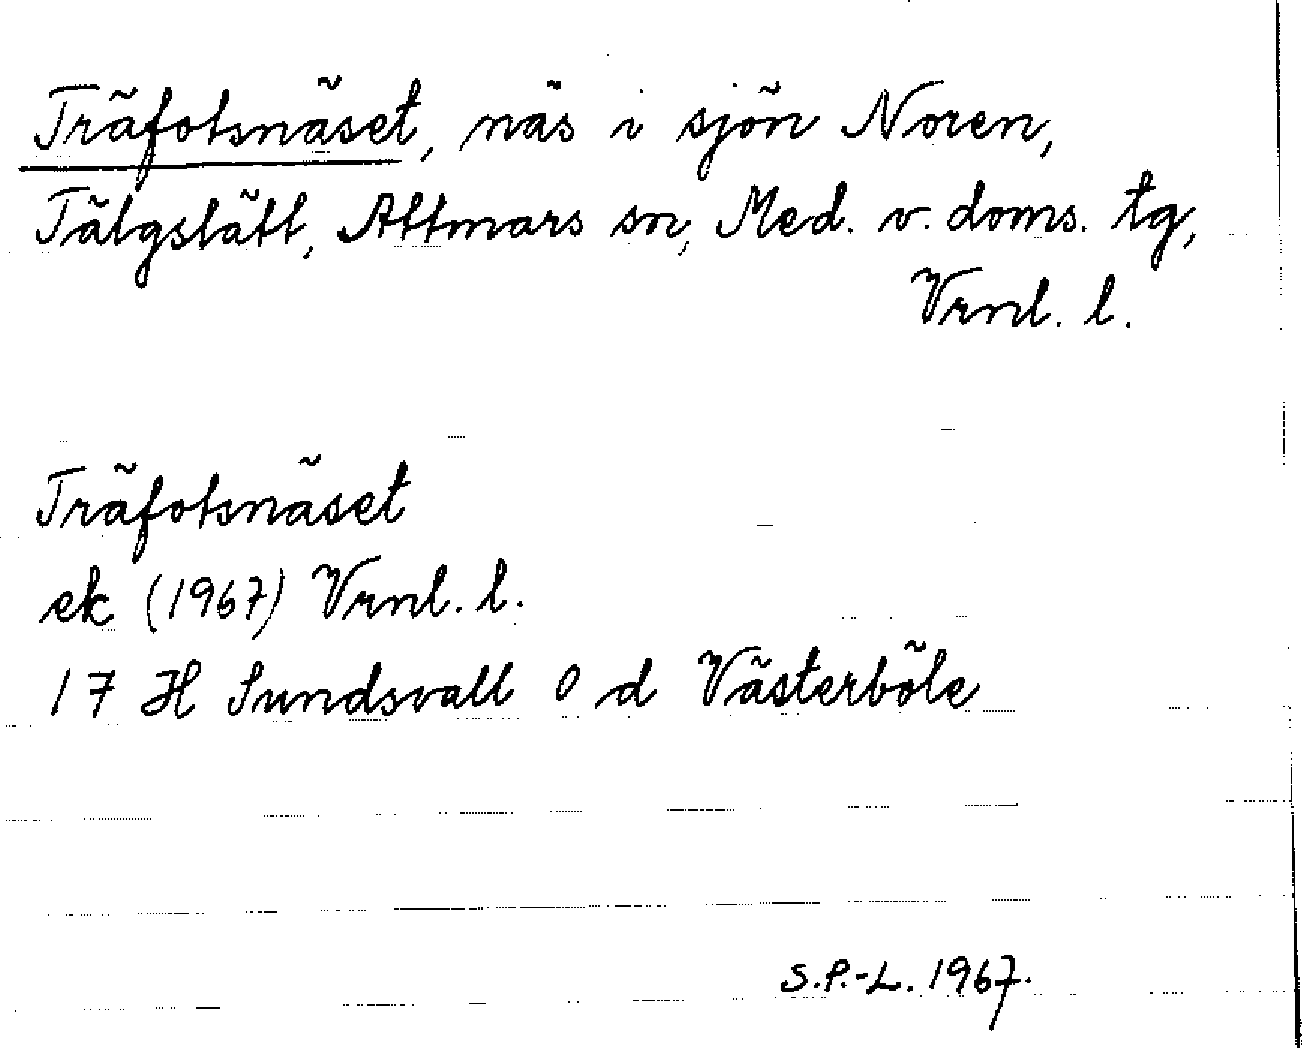 Träfotsnäset, näs i sjön Noren,
Tälgslätt, Attmars sn, Med. v. doms. tg,
Vrnl. l.
Träfotsnäset
ek (1967) Vrnl. l.
17 H Sundsvall 0 d Västerböle
S.P.-L. 1967.